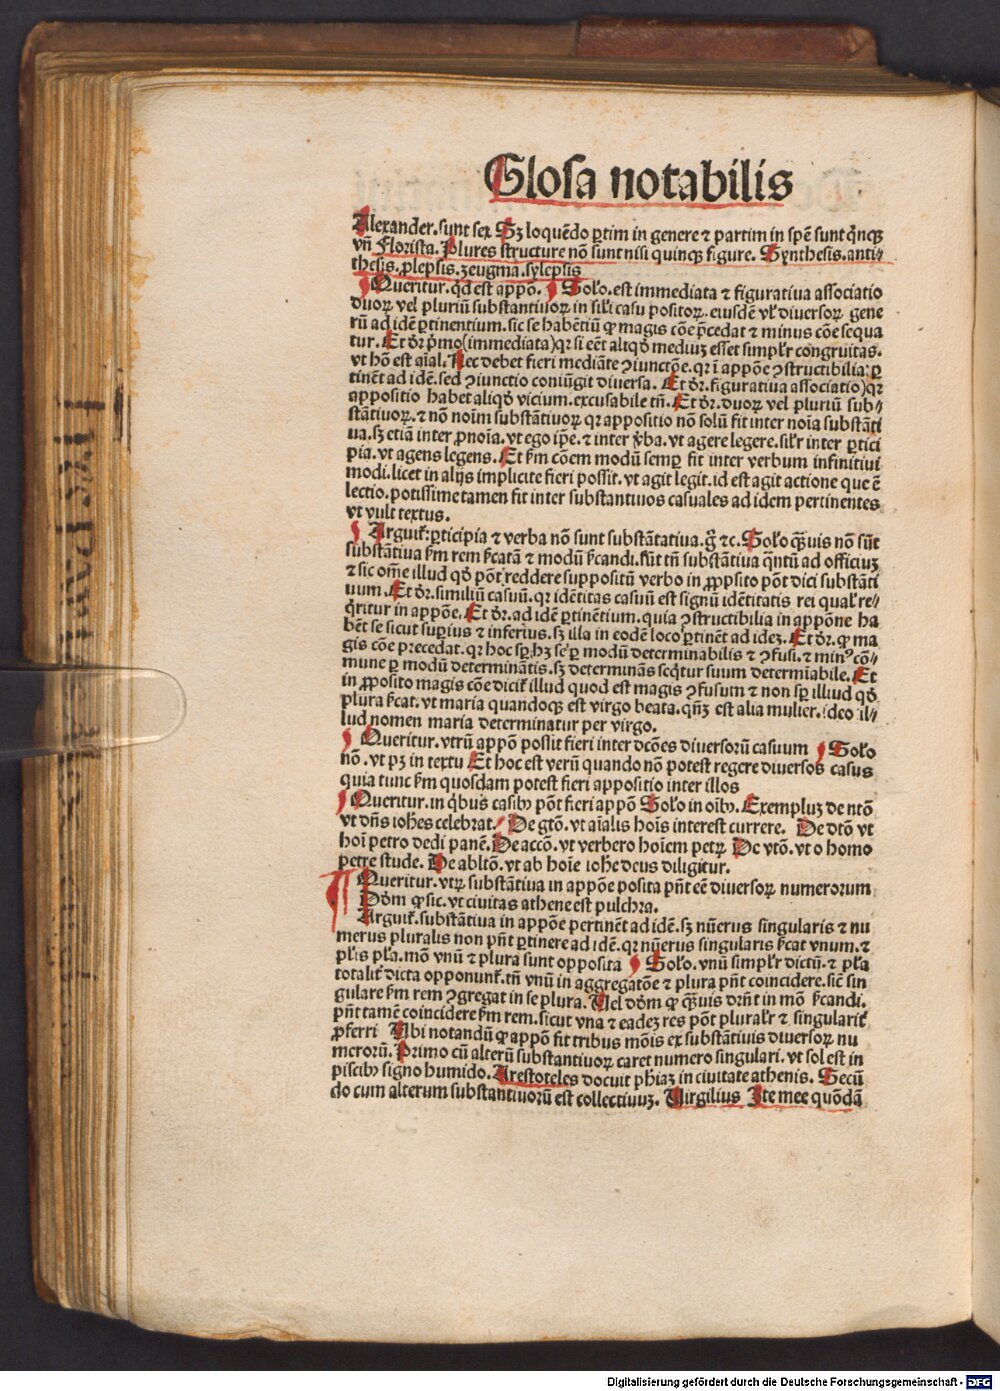 Glosa notabilis
Alexander. sunt sex Sꝫ loquēdo ꝑtim in genere ⁊ partim in spē sunt qͥnqꝫ
vñ Florista. Plures structure nō sunt nisi quinqꝫ figure. Synthesis. anti⸗
thesis. ꝓlepsis. zeugma. sylepsis
Queritur. qͥd est appō. Solo. est immediata ⁊ figuratiua associatio
duoꝝ vel pluriū substantiuoꝝ in sili casu positoꝝ. eiusdē vl̓ diuersoꝝ gene
rū ad idē ꝑtinentium. sic se habētiū ꝙ magis cōe p̄cedat ⁊ minus cōe sequa
tur. Et dr̄ pͥmo (immediata) qꝛ si eēt aliqḋ mediuꝫ esset simplr̓ congruitas.
vt hō est aīal. Nec debet fieri mediāte ꝯiunctōe. qꝛ ī appōe ꝯstructibilia ꝑ
tinēt ad idē. sed ꝯiunctio coniūgit diuersa. Et dr̄. figuratiua associatio) qꝛ
appositio habet aliqḋ vicium. excusabile tñ. Et dr̄. duoꝝ vel pluriū sub⸗
stātiuoꝝ. ⁊ nō noīm substātiuoꝝ qꝛ appositio nō solū fit inter noīa substāti
ua. sꝫ etiā inter ꝓnoīa. vt ego ip̄e. ⁊ inter v̓ba. vt agere legere. silr̓ inter ꝑtici
pia. vt agens legens. Et ẜm cōem modū semꝑ fit inter verbum infinitiui
modi. licet in alijs implicite fieri possit. vt agit legit. id est agit actione que ē
lectio. potissime tamen fit inter substantiuos casuales ad idem pertinentes
vt vult textus.
Arguit̓: ꝑticipia ⁊ verba nō sunt substātatiua. g̊ ⁊c. Solo qͣꝫuis nō sūt
substātiua ẜm rem ẜcatā ⁊ modū ẜcandi. sūt tñ substātiua qͣntū ad officiuꝫ
⁊ sic om̄e illud qḋ pōt reddere suppositū verbo in ꝓposito pōt dici substāti
uum. Et dr̄. similiū casuū. qꝛ idētitas casuū est signū idētitatis rei qual̓ re⸗
qͥritur in appōe. Et dr̄. ad idē ꝑtinētium. quia ꝯstructibilia in appōne ha
bēt se sicut suꝑius ⁊ inferius. sꝫ illa in eodē loco ꝑtinēt ad ideꝫ. Et dr̄. ꝙ ma
gis cōe precedat. qꝛ hoc sꝑ hꝫ se ꝑ modū determinabilis ⁊ ꝯfusi. ⁊ minꝰ cō⸗
mune ꝑ modū determinātis. sꝫ determinās seqͥtur suum determīabile. Et
in ꝓposito magis cōe dicit̓ illud quod est magis ꝯfusum ⁊ non sꝑ illud qḋ
plura ẜcat. vt maria quandoqꝫ est virgo beata. qñꝫ est alia mulier. ideo il⸗
lud nomen maria determinatur per virgo.
Queritur. vtrū appō possit fieri inter dcōes diuersorū casuum Solo
nō. vt pꝫ in textu Et hoc est verū quando nō potest regere diuersos casus
quia tunc ẜm quosdam potest fieri appositio inter illos
Queritur. in qͥbus casibꝫ pōt fieri appō Solo in oībꝫ. Exempluꝫ de ntō
vt dn̄s iohēs celebrat. De gtō. vt aīalis hoīs interest currere. De dtō vt
hoī petro dedi panē. De accō. vt verbero hoīem petꝝ De vtō. vt o homo
petre stude. De abltō. vt ab hoīe iohe deus diligitur.
Queritur. vtꝝ substātiua in appōe posita pn̄t eē diuersoꝝ numerorum
Dōm ꝙ sic. vt ciuitas athene est pulchra.
Arguit̓. substātiua in appōe pertinēt ad idē. sꝫ nūerus singularis ⁊ nu
merus pluralis non pn̄t ꝑtinere ad idē. qꝛ nūerus singularis ẜcat vnum. ⁊
pl̓is pl̓a. mō vnū ⁊ plura sunt opposita Solo. vnū simplr̓ dictū. ⁊ pl̓a
totalit̓ dicta opponunt̓. tñ vnū in aggregatōe ⁊ plura pn̄t coincidere. sic̄ sin
gulare ẜm rem ꝯgregat in se plura. Uel dōm ꝙ qͣꝫuis dr̄nt in mō ẜcandi.
pn̄t tamē coincidere ẜm rem. sicut vna ⁊ eadeꝫ res pōt pluralr̓ ⁊ singularit̓
ꝓferri Ubi notandū ꝙ appō fit tribus mōis ex substātiuis diuersoꝝ nu
merorū. Primo cū alterū substantiuoꝝ caret numero singulari. vt sol est in
piscibꝫ signo humido. Arestoteles docuit ph̓iaꝫ in ciuitate athenis. Secū
do cum alterum substantiuorū est collectiuuꝫ. Uirgilius Ite mee quōdā
Digitalisierung gefördert durch die Deutsche Forschungsgemeinschaft - DFG